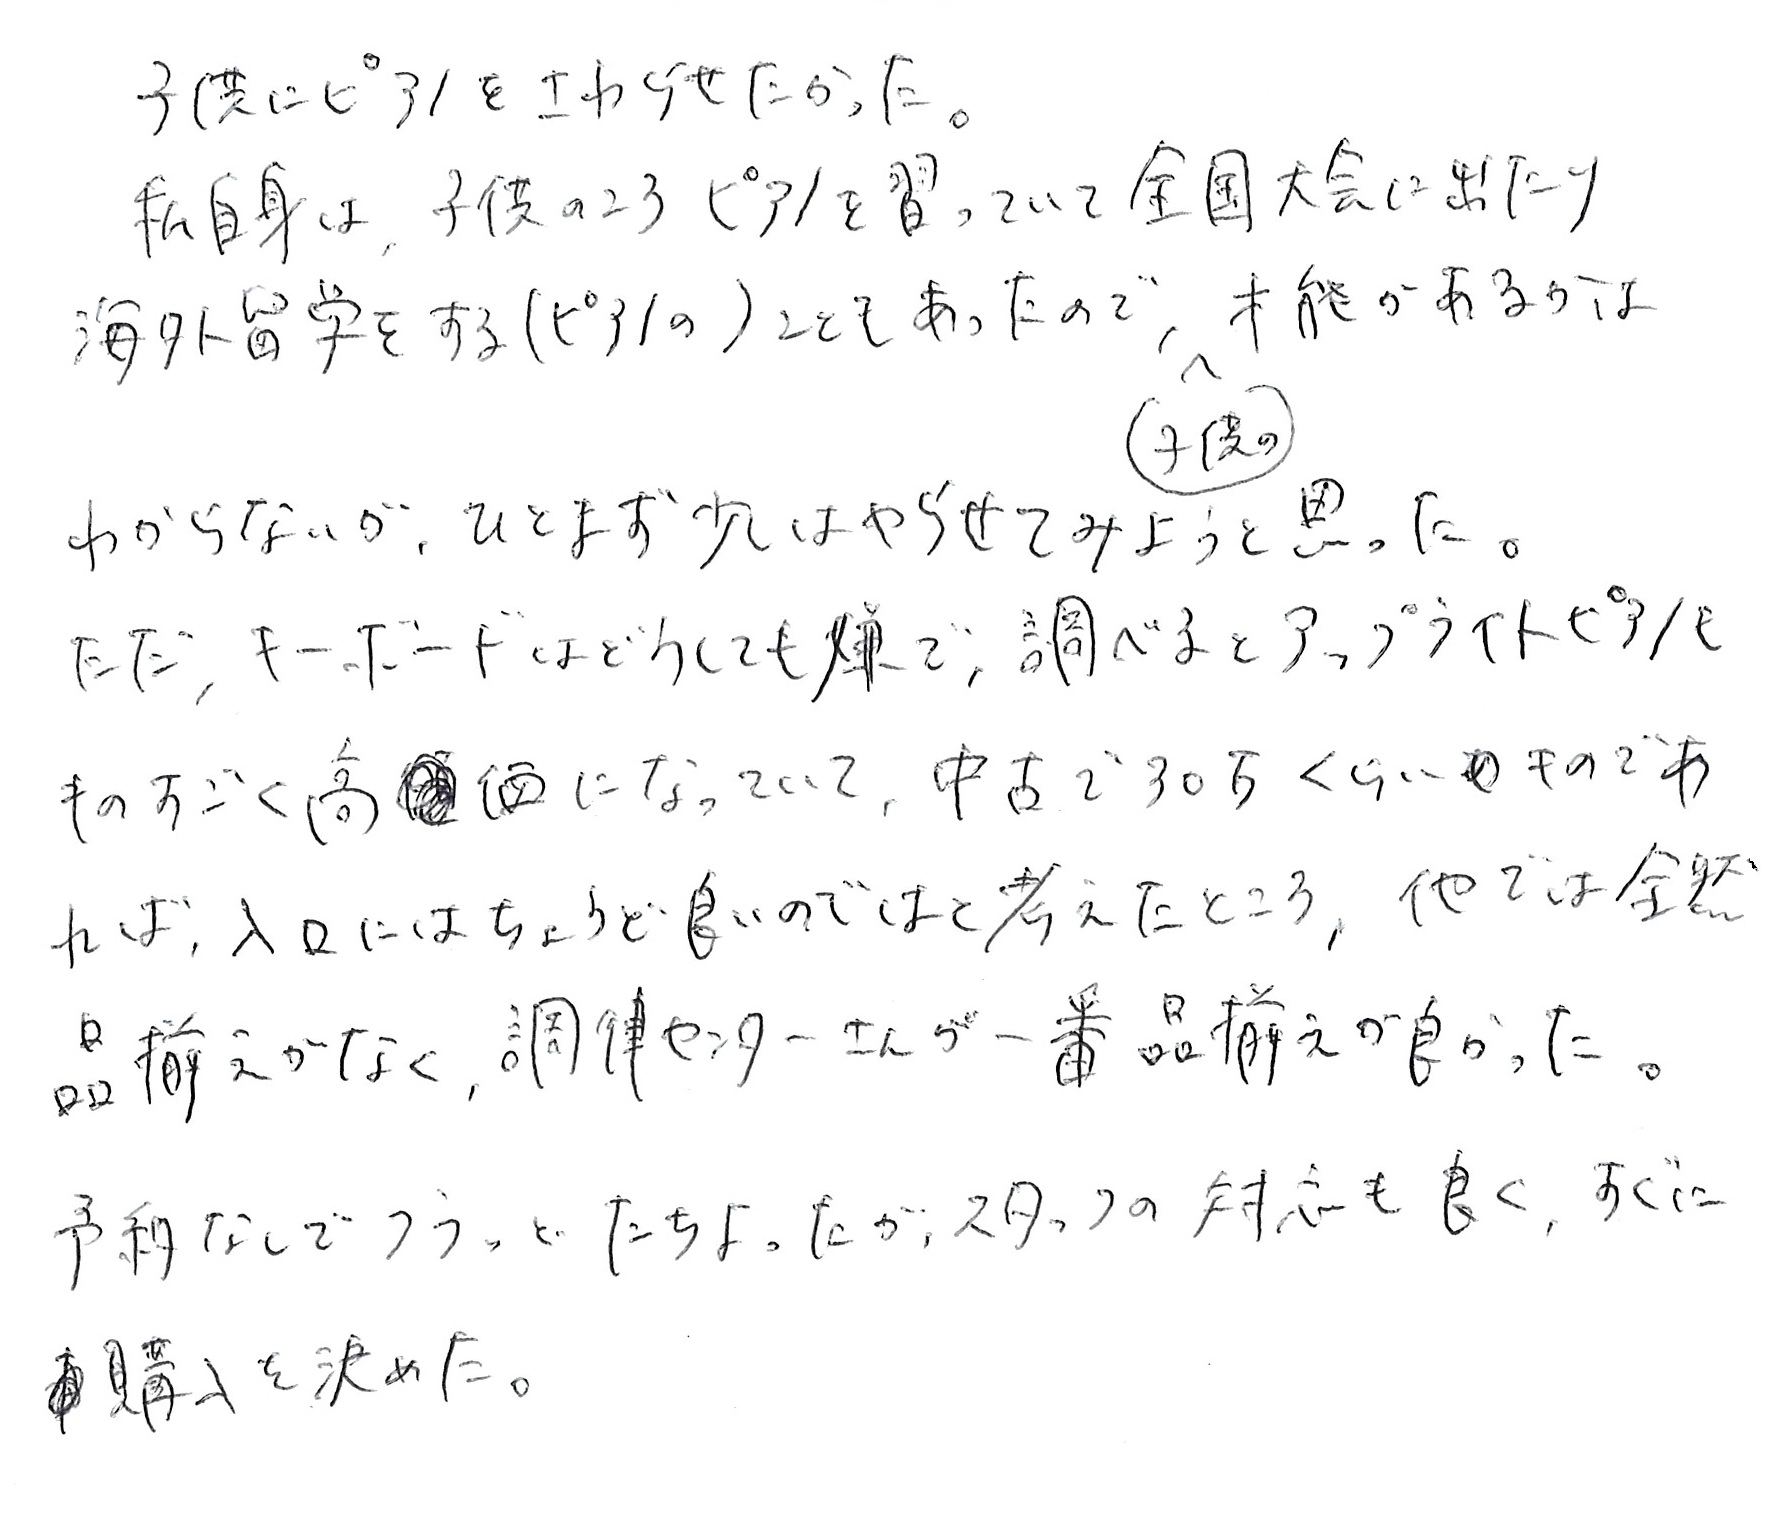 子供にピアノをさわらせたかった。
私自身は、子供のころピアノを習っていて全国大会に出たり
海外留学をする(ピアノの)こともあったので、才能があるかは
子供の
わからないが、ひとまず少しはやらせてみようと思った。
ただ、キーボードはどうしても嫌で、調べるとアップライトピアノも
ものすごく高価になっていて、中古で30万くらいのものであ
れば、入口にはちょうど良いのではと考えたところ、他では全然
品揃えがなく、調律センターさんが一番品揃えが良かった。
予約なしでフラっとたちよったが、スタッフの対応も良く、すぐに
購入を決めた。